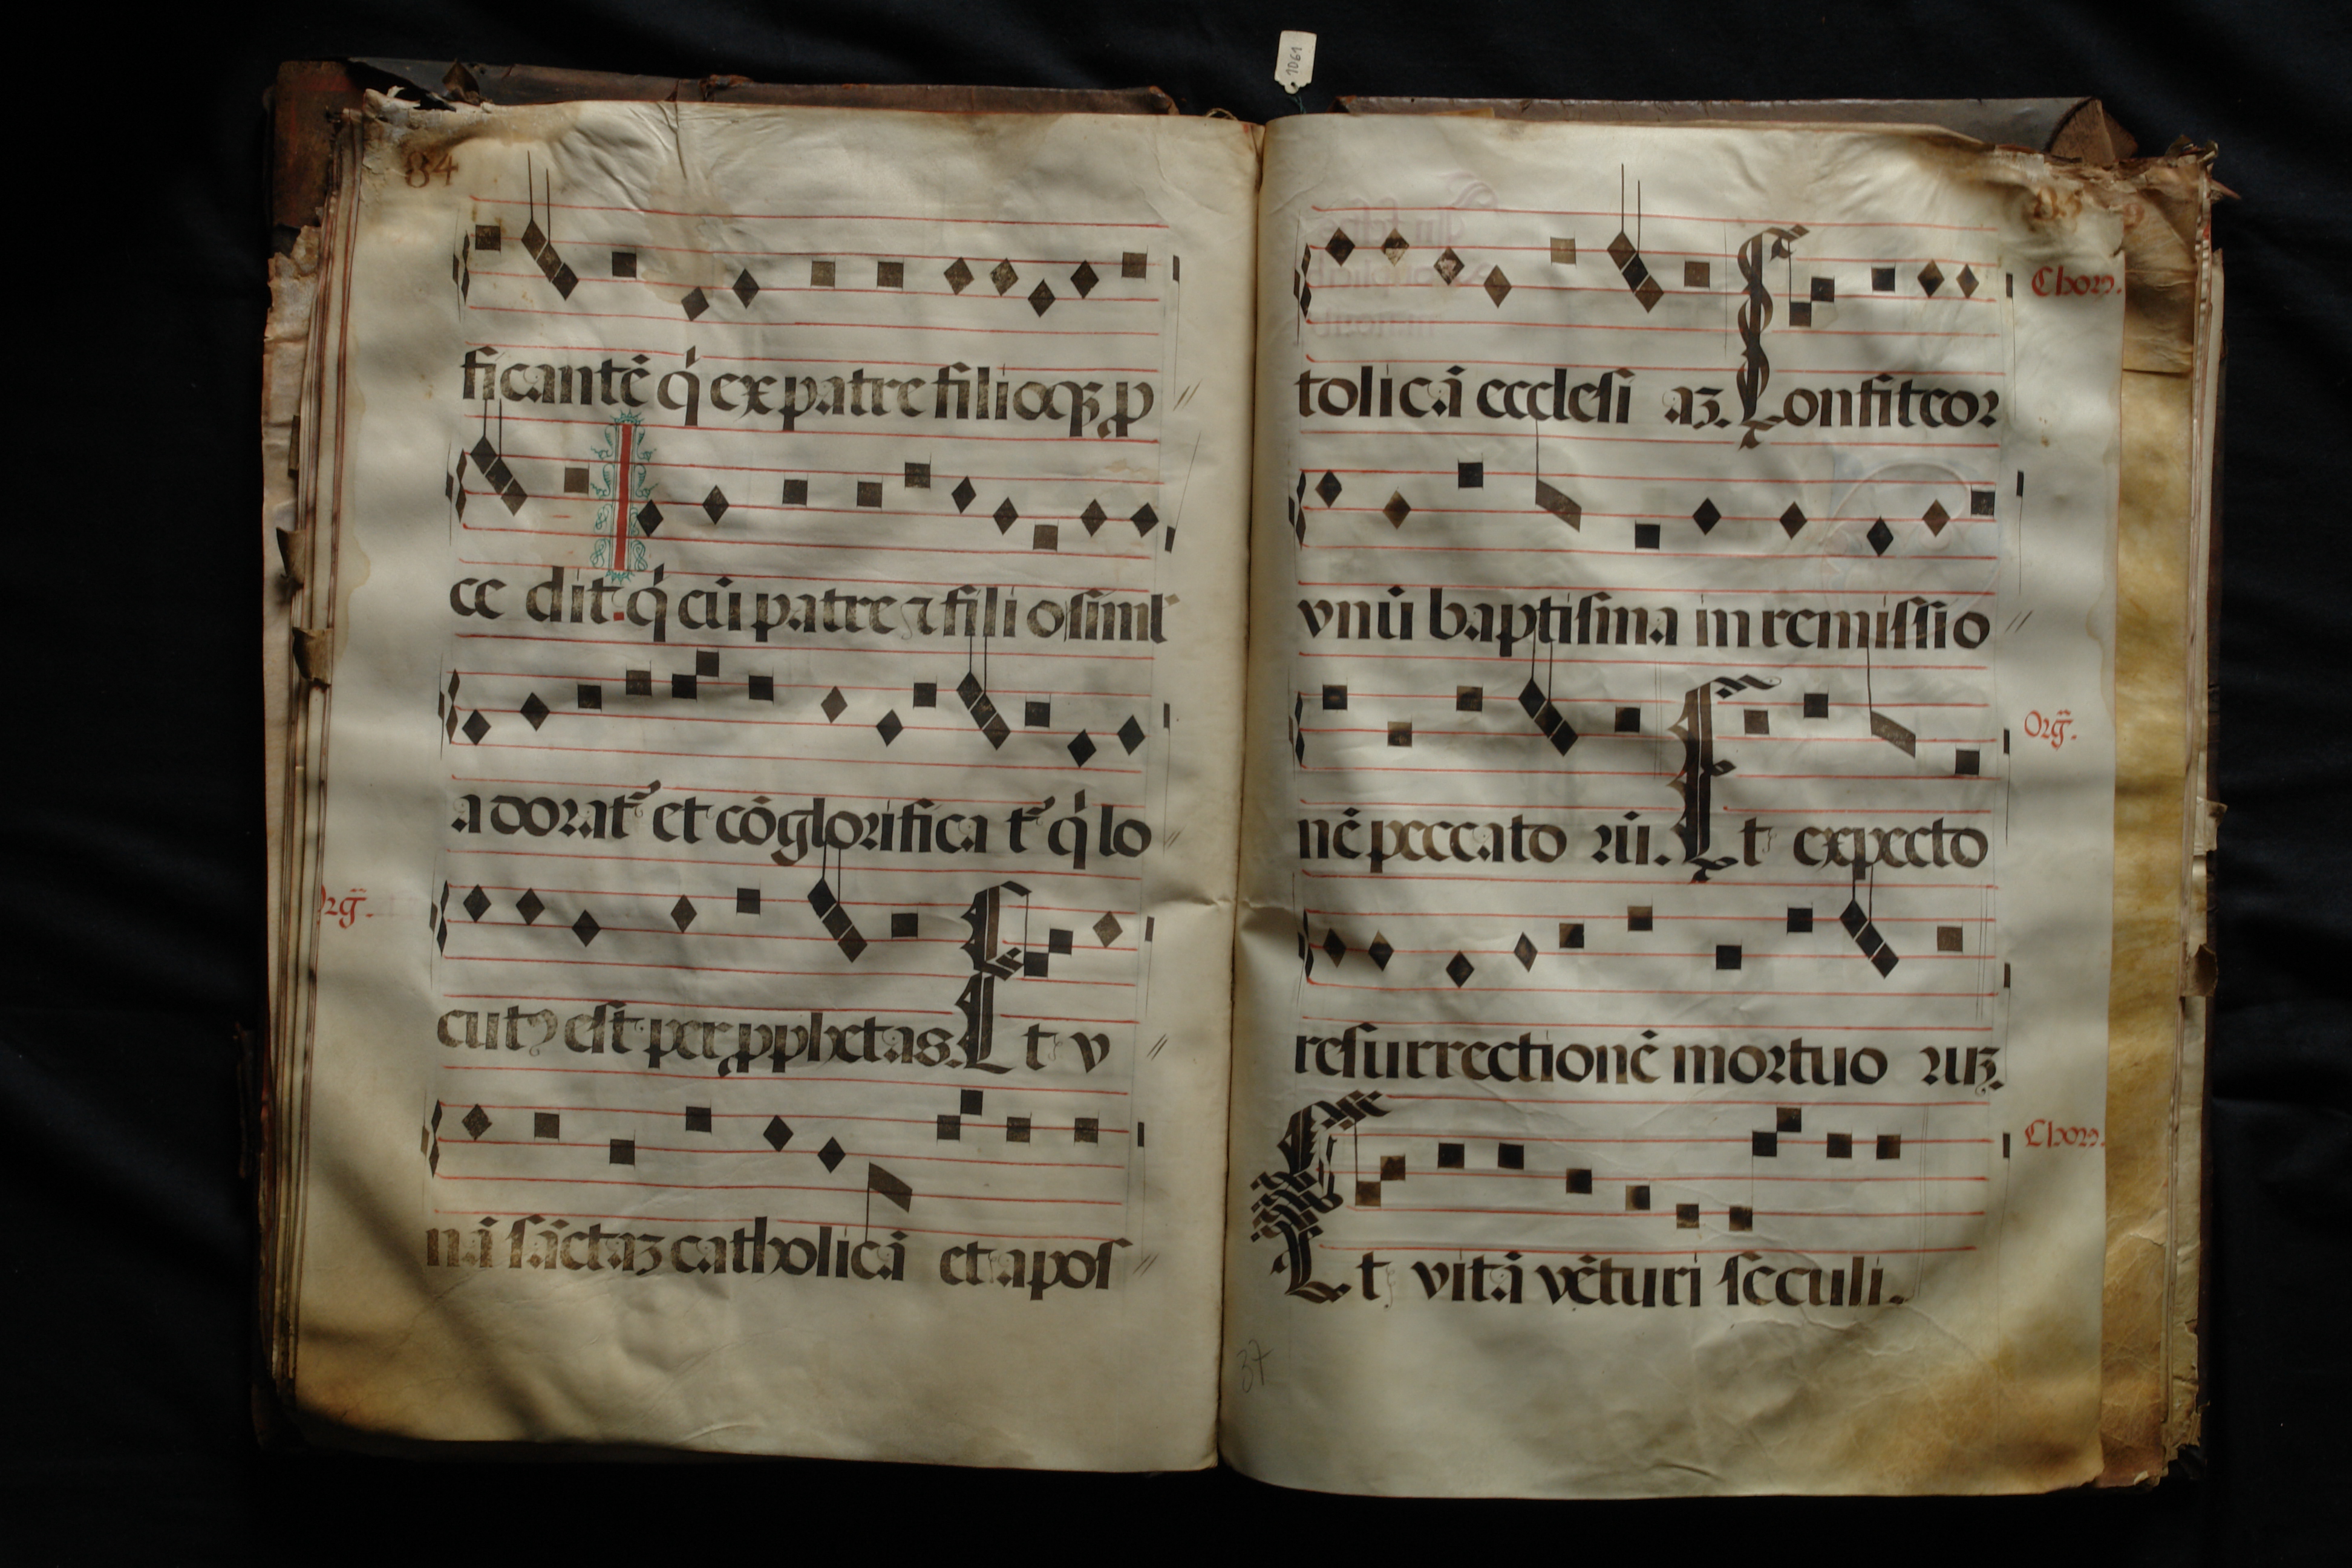 1061
84
ficantē q̇ ex patre filioqꝫ ꝓ
ce dit. q̇ cū patre ⁊ filio simul
adorat᷑ et cōglorifica t᷑ q̇ lo
Orgᷓ.
cutꝰ est per ꝓphetas. Et v
nā sāctaꝫ catholicā et apos
85
tolicā ecclesi aꝫ. Confiteor
Chorꝰ.
vnū baptisma in remissio
nē peccato rū. Et expecto
Orgᷓ.
resurrectionē mortuo ruꝫ.
Et vitā vēturi seculi.
Chorꝰ.
37